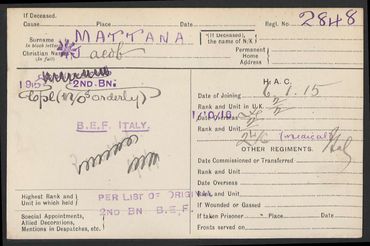 If Deceased.
Cause Place Date Regl. No. 2848
Surname (In block letters) MATTANA
{If Deceased}, the name of N/K
Christian Name (In full) Jacob
Permanent Home Address
2ND. BN.
H. A. C.
Date of Joining 6.1.15
Cpl (M/O's orderly)
Rank and Unit in U.K.
Date Overseas 1/10/16
B.E.F. ITALY.
Rank and Unit 2/6 (medical)
OTHER REGIMENTS.
Date Commissioned or Transferred
Rank and Unit
Date Overseas
Highest Rank and Unit in which held
PER LIST OF ORIGINAL
2ND BN B.E.F.
Rank and Unit
If Wounded or Gassed
Special Appointments, Allied Decorations, Mentions in Despatches, etc.
If taken Prisoner Place Date
Fronts served on